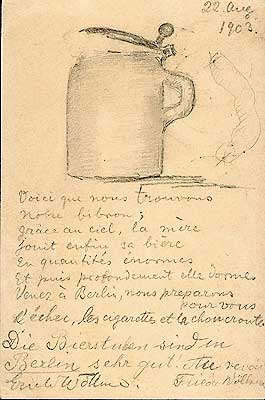 22 Aug
1903.
Voici que nous trouvons
Notre bibron;
Grâce au ciel, la mère
Jouit enfin sa bière
En quantités énormes
Et puis profondement elle dorme.
Venez à Berlin, nous preparons
pour vous
L'échec, les cigarettes et la choucroute.
Die Bierstuben sind in
Berlin sehr gut! Au revoir
Erich